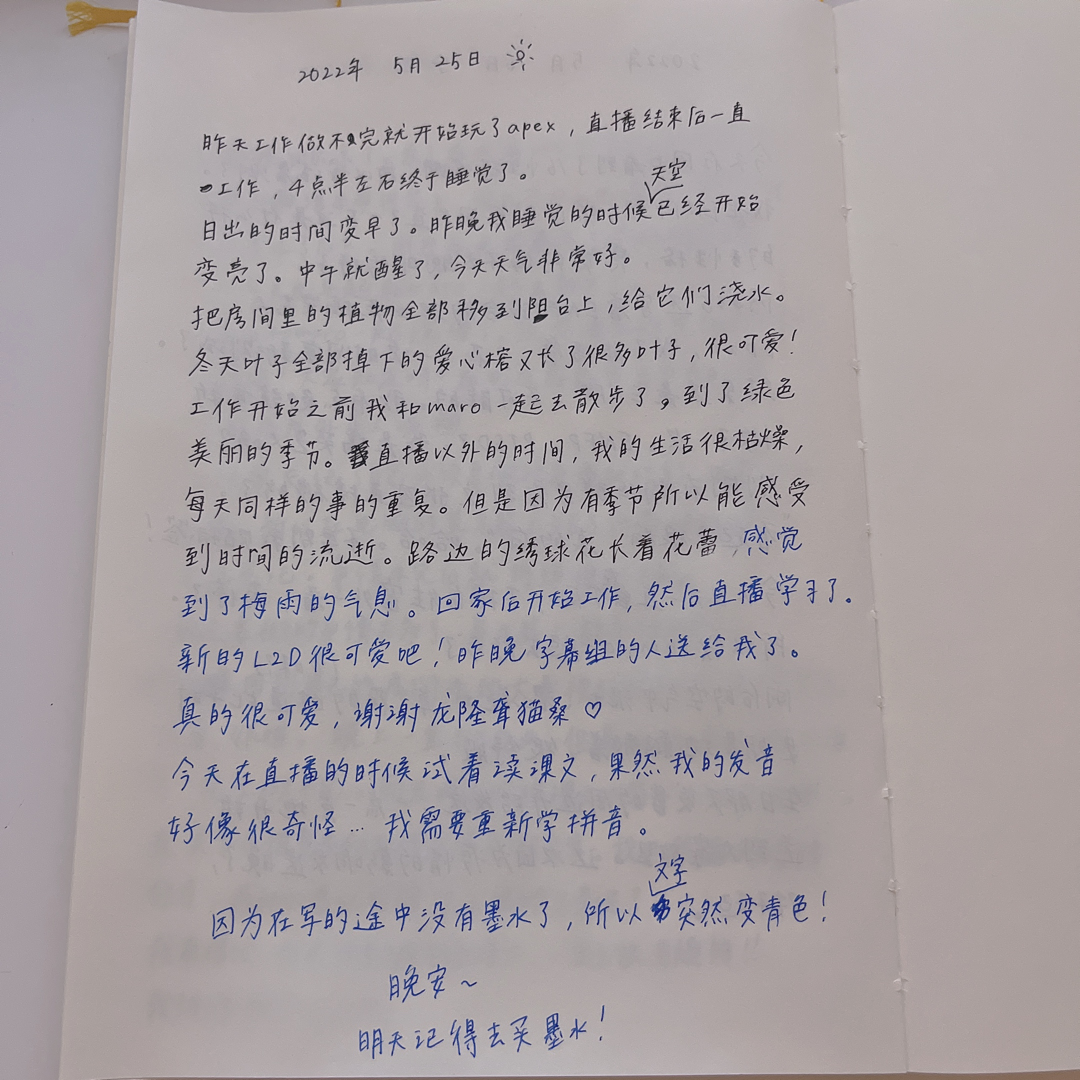 2022年 5月 25日
昨天工作做不完就开始玩了apex，直播结束后一直
工作，4点半左右终于睡觉了。
天空
日出的时间变早了。昨晚我睡觉的时候已经开始
变亮了。中午就醒了，今天天气非常好。
把房间里的植物全部移到阳台上，给它们浇水。
冬天叶子全部掉下的爱心榕又长了很多叶子，很可爱！
工作开始之前我和maro一起去散步了。到了绿色
美丽的季节。直播以外的时间，我的生活很枯燥，
每天同样的事的重复。但是因为有季节所以能感受
到时间的流逝。路边的绣球花长着花蕾，感觉
到了梅雨的气息。回家后开始工作，然后直播学习了。
新的L2D很可爱吧！昨晚字幕组的人送给我了。
真的很可爱，谢谢龙隆聋猫桑♡
今天在直播的时候试着读课文，果然我的发音
好像很奇怪… 我需要重新学拼音。
文字
因为在写的途中没有墨水了，所以突然变青色！
晚安～
明天记得去买墨水！